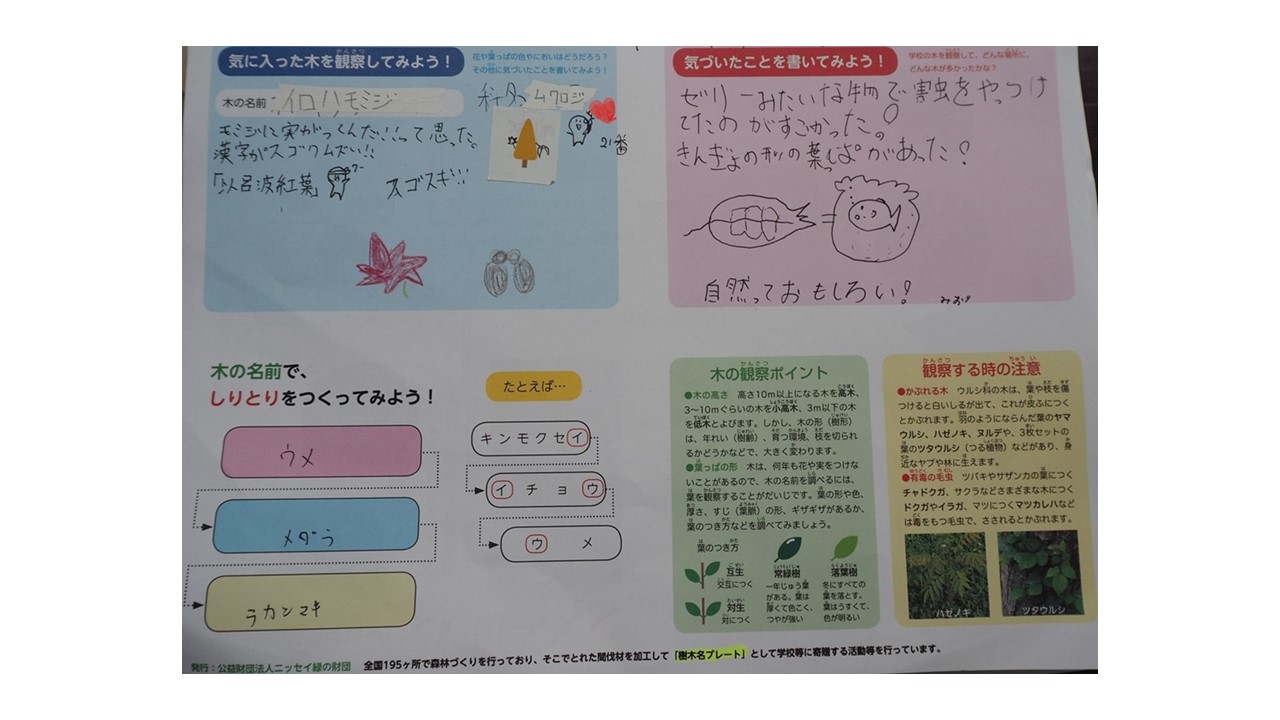 気に入った木を観察してみよう！
花や葉っぱの色やにおいはどうだろう？
その他に気づいたことを書いてみよう！
木の名前
イロハモミジ
ムクロジ
21番
モミジに実がつくんだ!!って思った。
漢字がスゴクムズい!!
「以呂波紅葉」
スゴスギ!!!
気づいたことを書いてみよう！
学校の木を観察して、どんな場所に、
どんな木が多かったかな？
ゼリーみたいな物で害虫をやっつけ
てたのがすごかった。
きんぎょの形の葉っぱがあった！
自然っておもしろい！
木の名前で、
しりとりをつくってみよう！
ウメ
メダラ
ラカンマキ
たとえば…
キンモクセイ
イチョウ
ウメ
木の観察ポイント
●木の高さ　高さ10m以上になる木を高木、
3〜10mぐらいの木を小高木、3m以下の木
を低木とよびます。しかし、木の形（樹形）
は、年れい（樹齢）、育つ環境、枝を切られ
るかどうかなどで、大きく変わります。
●葉っぱの形　木は、何年も花や実をつけな
いことがあるので、木の名前を調べるには、
葉を観察することがだいじです。葉の形や色、
厚さ、すじ（葉脈）の形、ギザギザがあるか、
葉のつき方などを調べてみましょう。
葉のつき方
互生
交互につく
対生
対につく
常緑樹
一年じゅう葉
がある。葉は
厚くて色こく、
つやが強い
落葉樹
冬にすべての
葉を落とす。
葉はうすくて、
色が明るい
観察する時の注意
●かぶれる木　ウルシ科の木は、葉や枝を傷
つけると白いしるが出て、これが皮ふにつく
とかぶれます。羽のようにならんだ葉のヤマ
ウルシ、ハゼノキ、ヌルデや、3枚セットの
葉のツタウルシ（つる植物）などがあり、身
近なヤブや林に生えます。
●有毒の毛虫　ツバキやサザンカの葉につく
チャドクガ、サクラなどさまざまな木につく
ドクガやイラガ、マツにつくマツカレハなど
は毒をもつ毛虫で、さされるとかぶれます。
ハゼノキ
ツタウルシ
発行：公益財団法人ニッセイ緑の財団
全国195ヶ所で森林づくりを行っており、そこでとれた間伐材を加工して「樹木名プレート」として学校等に寄贈する活動等を行っています。